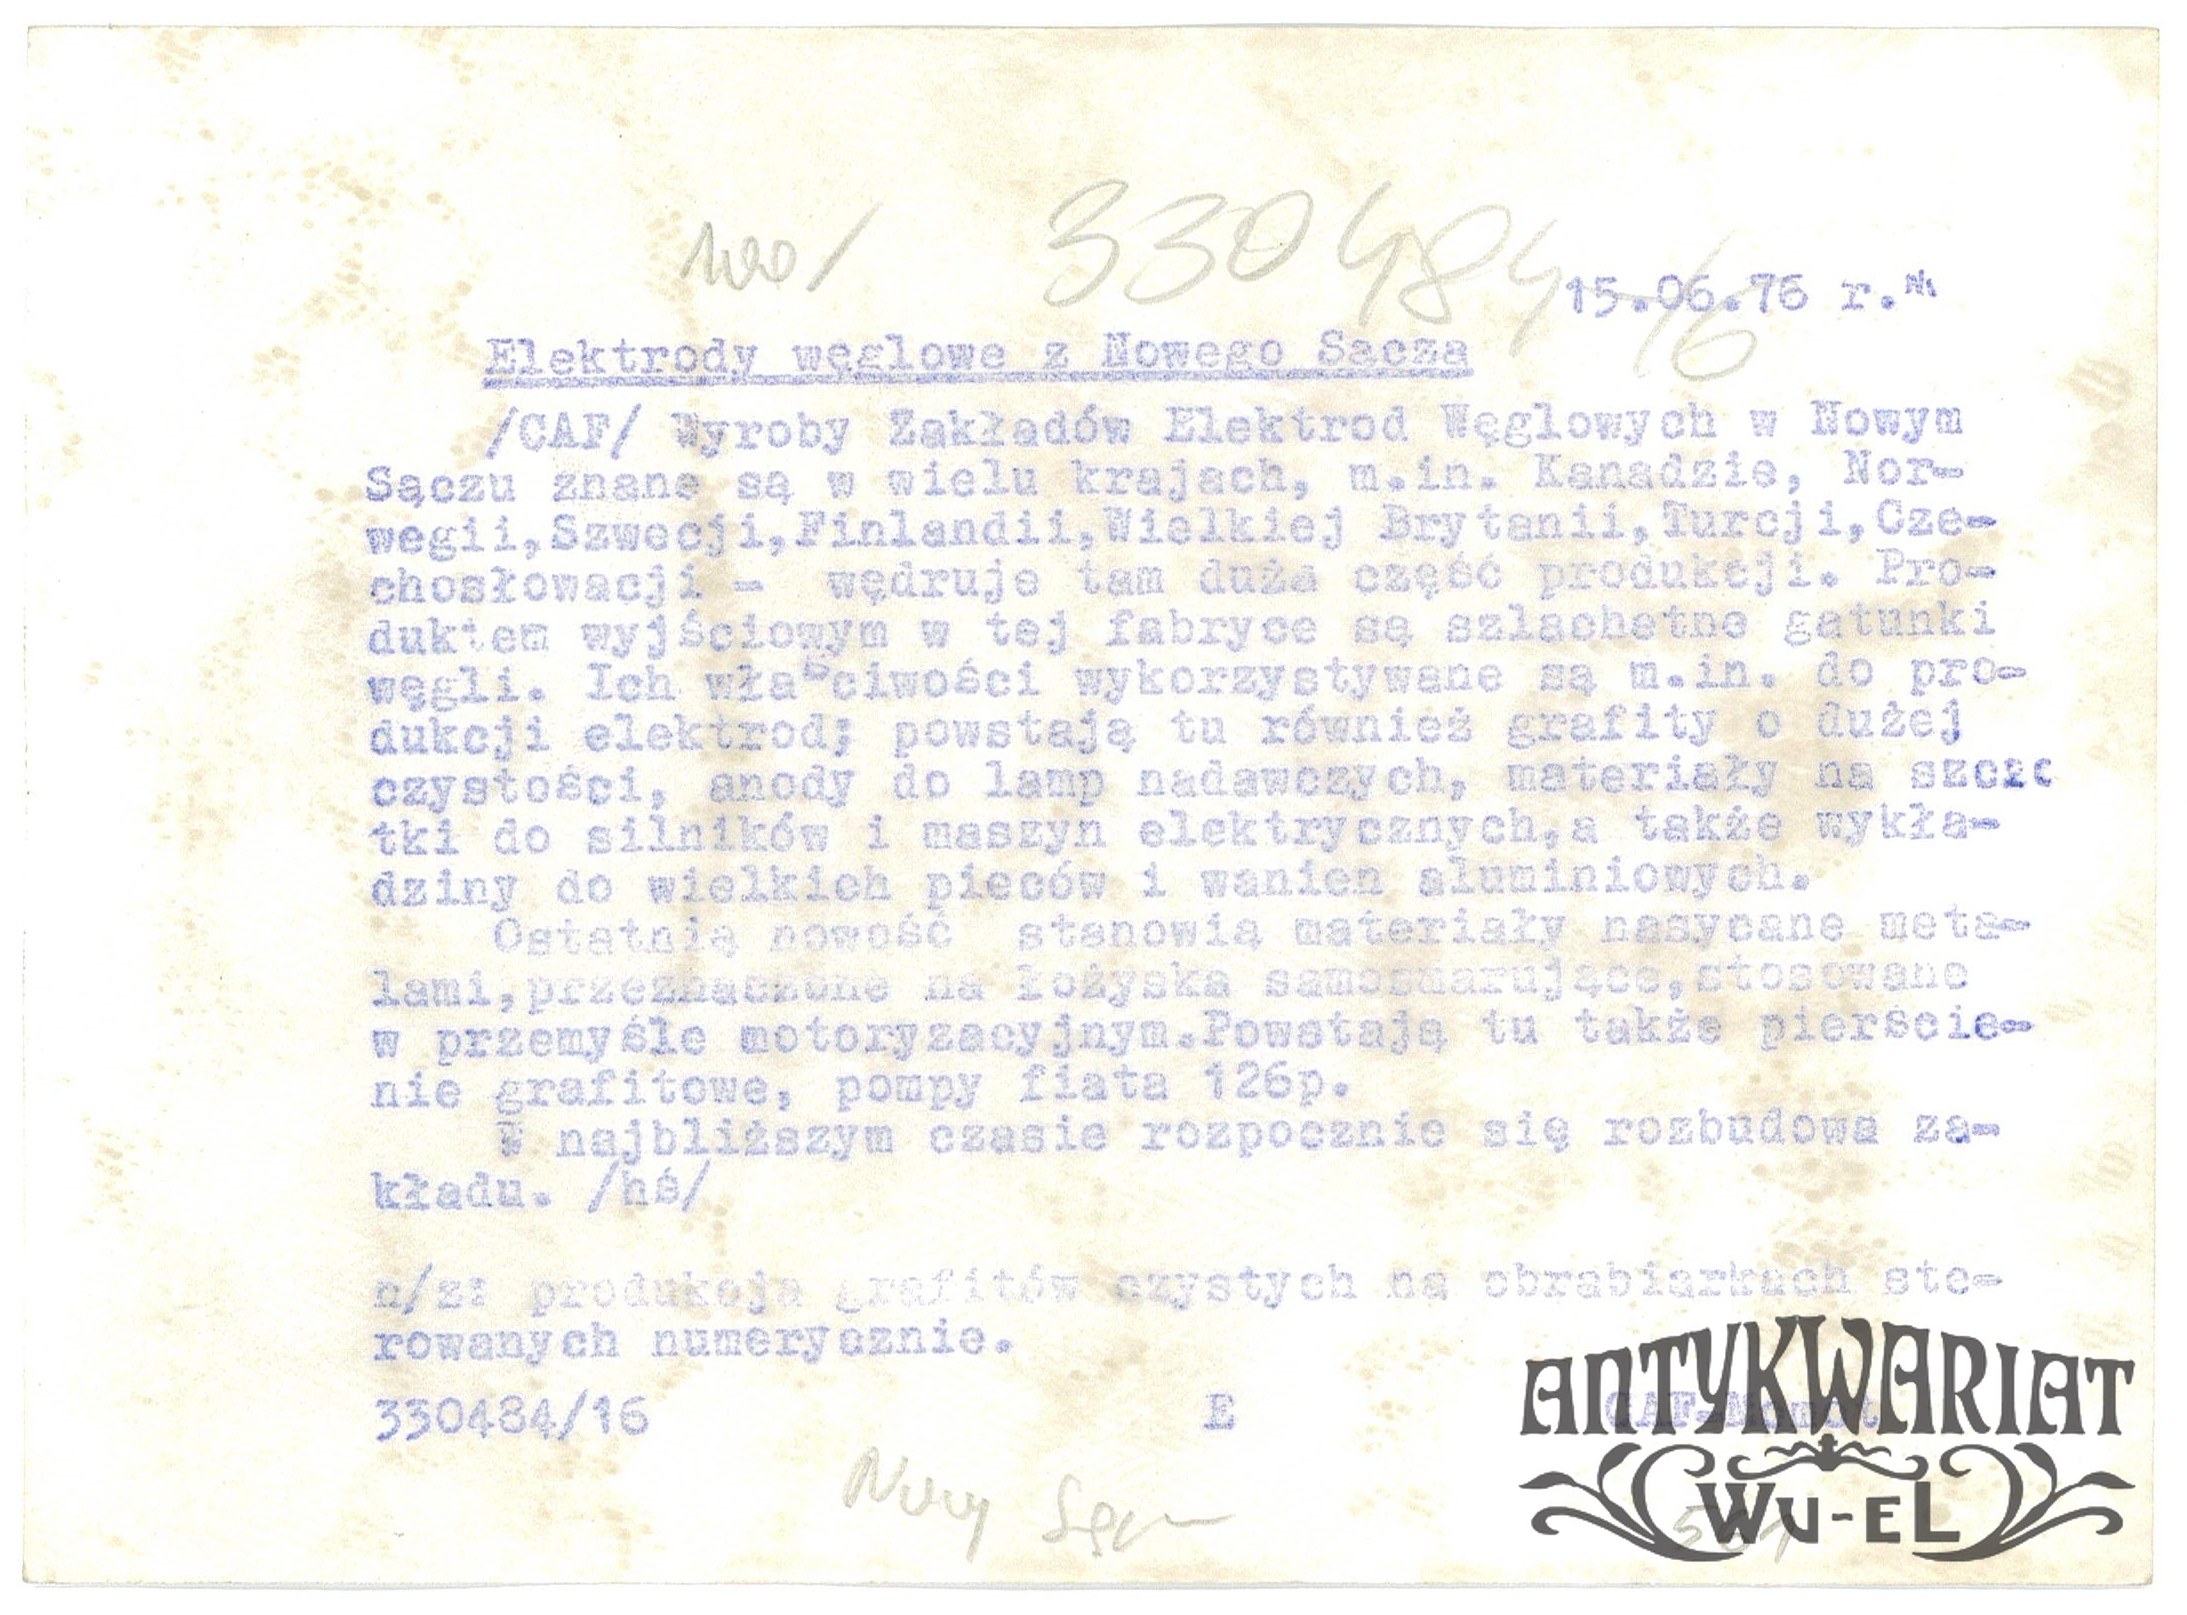 330484-16
15.06.76 r.
Elektrody węglowe z Nowego Sącza
/CAF/ Wyroby Zakładów Elektrod Węglowych w Nowym
Sączu znane są w wielu krajach, m.in. Kanadzie, Nor-
wegii,Szwecji,Finlandii,Wielkiej Brytanii,Turcji,Cze-
chosłowacji - wędruje tam duża część produkcji. Pro-
duktem wyjściowym w tej fabryce są szlachetne gatunki
węgli. Ich właściwości wykorzystywane są m.in. do pro-
dukcji elektrod; powstają tu również grafity o dużej
czystości, anody do lamp nadawczych, materiały na szczo
tki do silników i maszyn elektrycznych,a także wykła-
dziny do wielkich pieców i wanien aluminiowych.
Ostatnią nowość stanowią materiały nasycane meta-
lami,przeznaczone na łożyska samosmarujące,stosowane
w przemyśle motoryzacyjnym.Powstają tu także pierście-
nie grafitowe, pompy fiata 126p.
W najbliższym czasie rozpocznie się rozbudowa za-
kładu. /hś/
n/z: produkcja grafitów czystych na obrabiarkach ste-
rowanych numerycznie.
330484/16 E CAF-
Nowy Sącz
ANTYKWARIAT
WU-EL